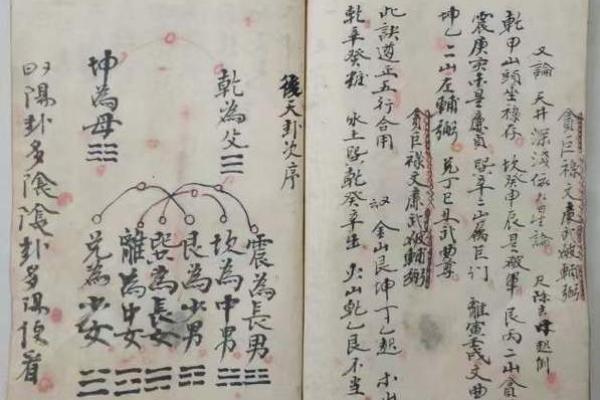 貪巨祿文廉武破輔弼
又論 天井深淺依 星論 尺除 起例
乾甲山頭坐祿存 坎癸申辰是破軍 艮丙二山貪
震庚亥未是廉貞 巽辛二山為巨門 離寅戌文曲
坤乙二山左輔弼 兌丁巳丑武曲尊
貪巨祿文廉武破輔弼
此訣遵正五行合用 金山艮坤丁乙起 木山
乾辛癸 水土巽乾癸辛生 火山乾乙艮不當
後天卦次序
乾為父
坤為母
震為長男
坎為中男
艮為少男
巽為長女
離為中女
兌為少女
陽卦多陰陰卦多陽便看